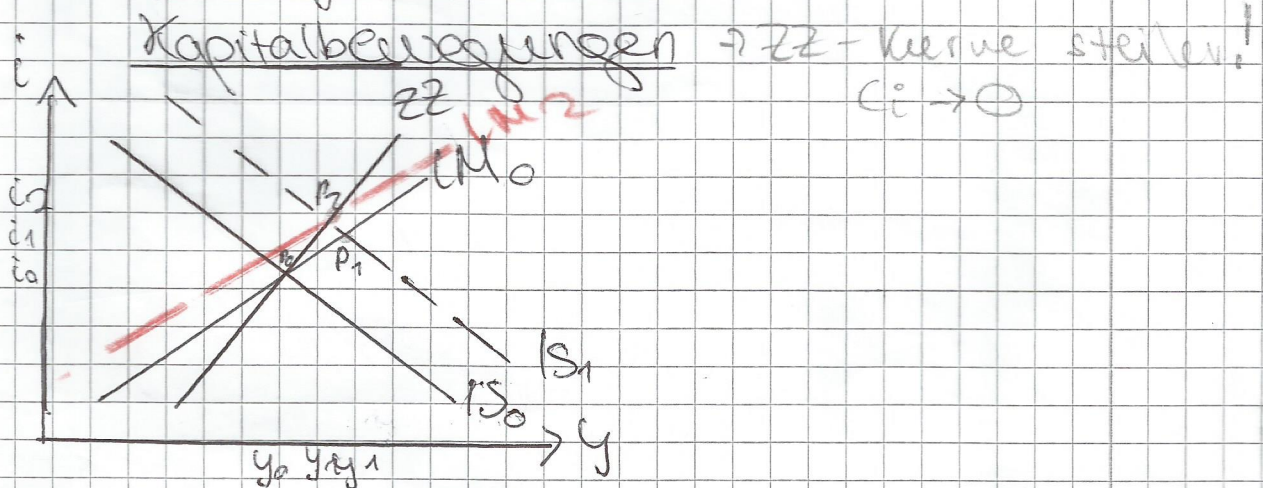 Kapitalbewegungen → ZZ-Kurve steiler!
Ci → ⊖
i
ZZ
LM2
LM0
i2
i1
i0
P2
P0
P1
IS1
IS0
y
y0 y2 y1